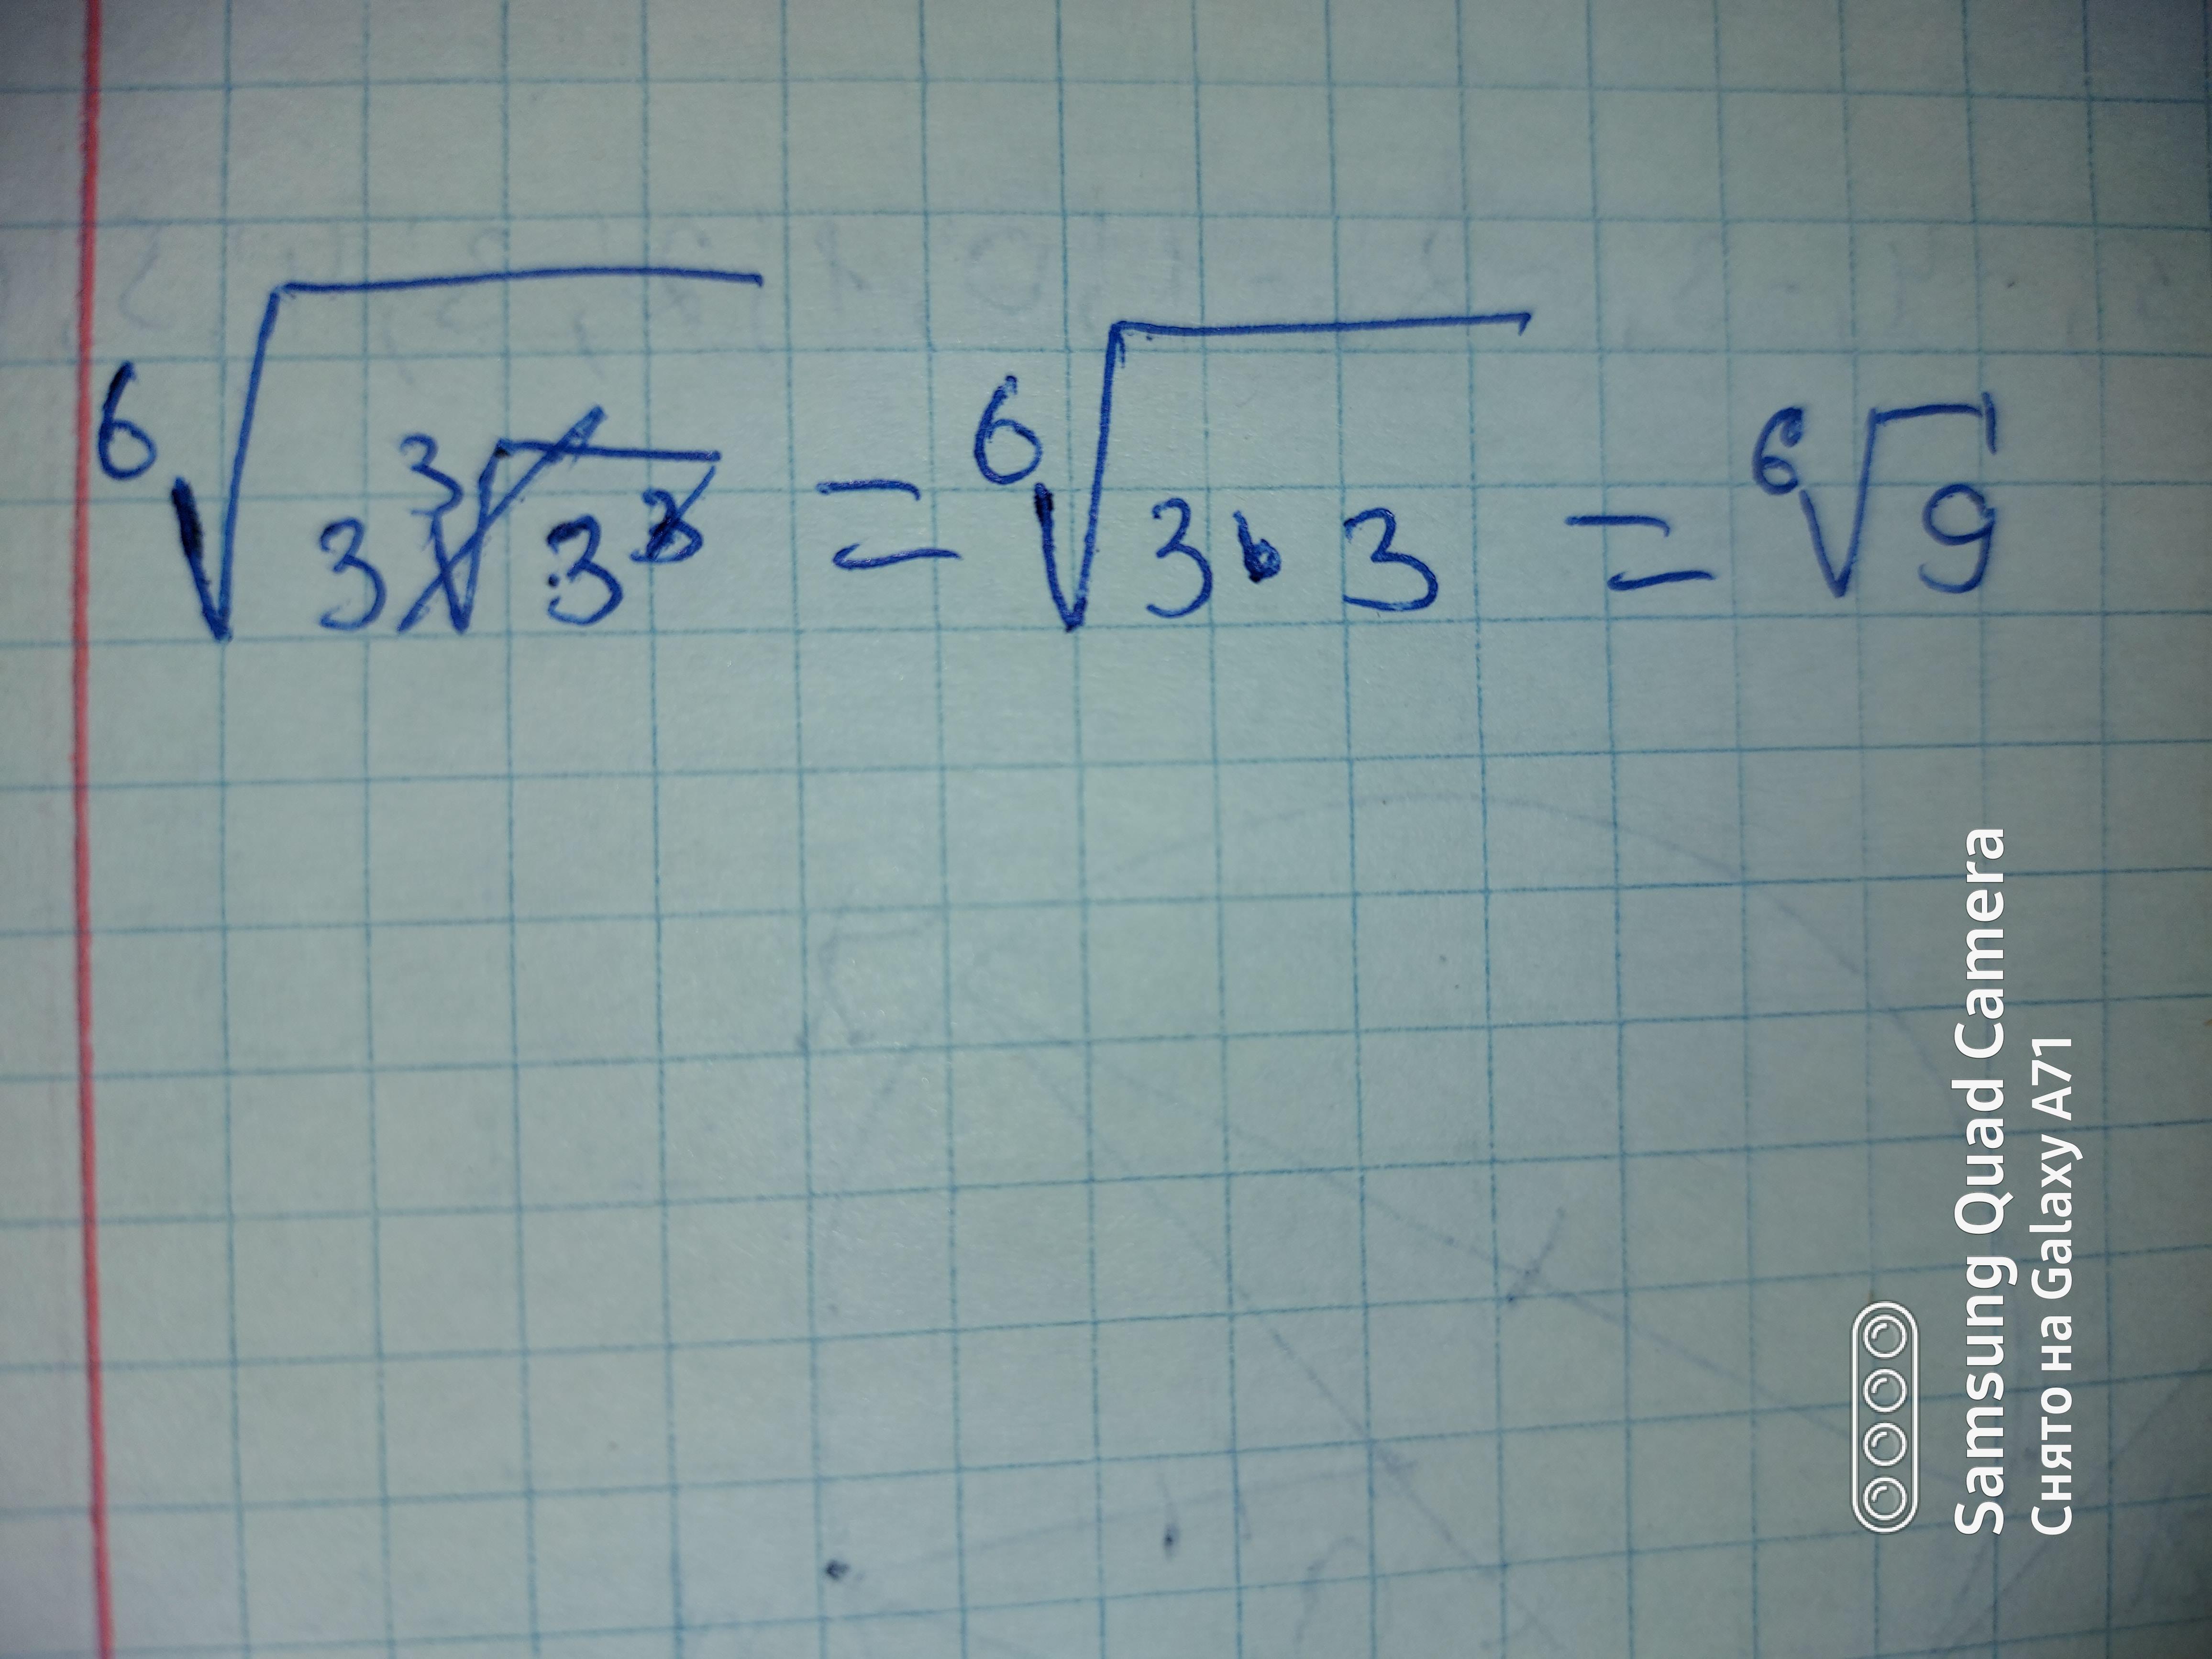 ⁶√(3∛(3³)) = ⁶√(3·3) = ⁶√9
Samsung Quad Camera
Снято на Galaxy A71